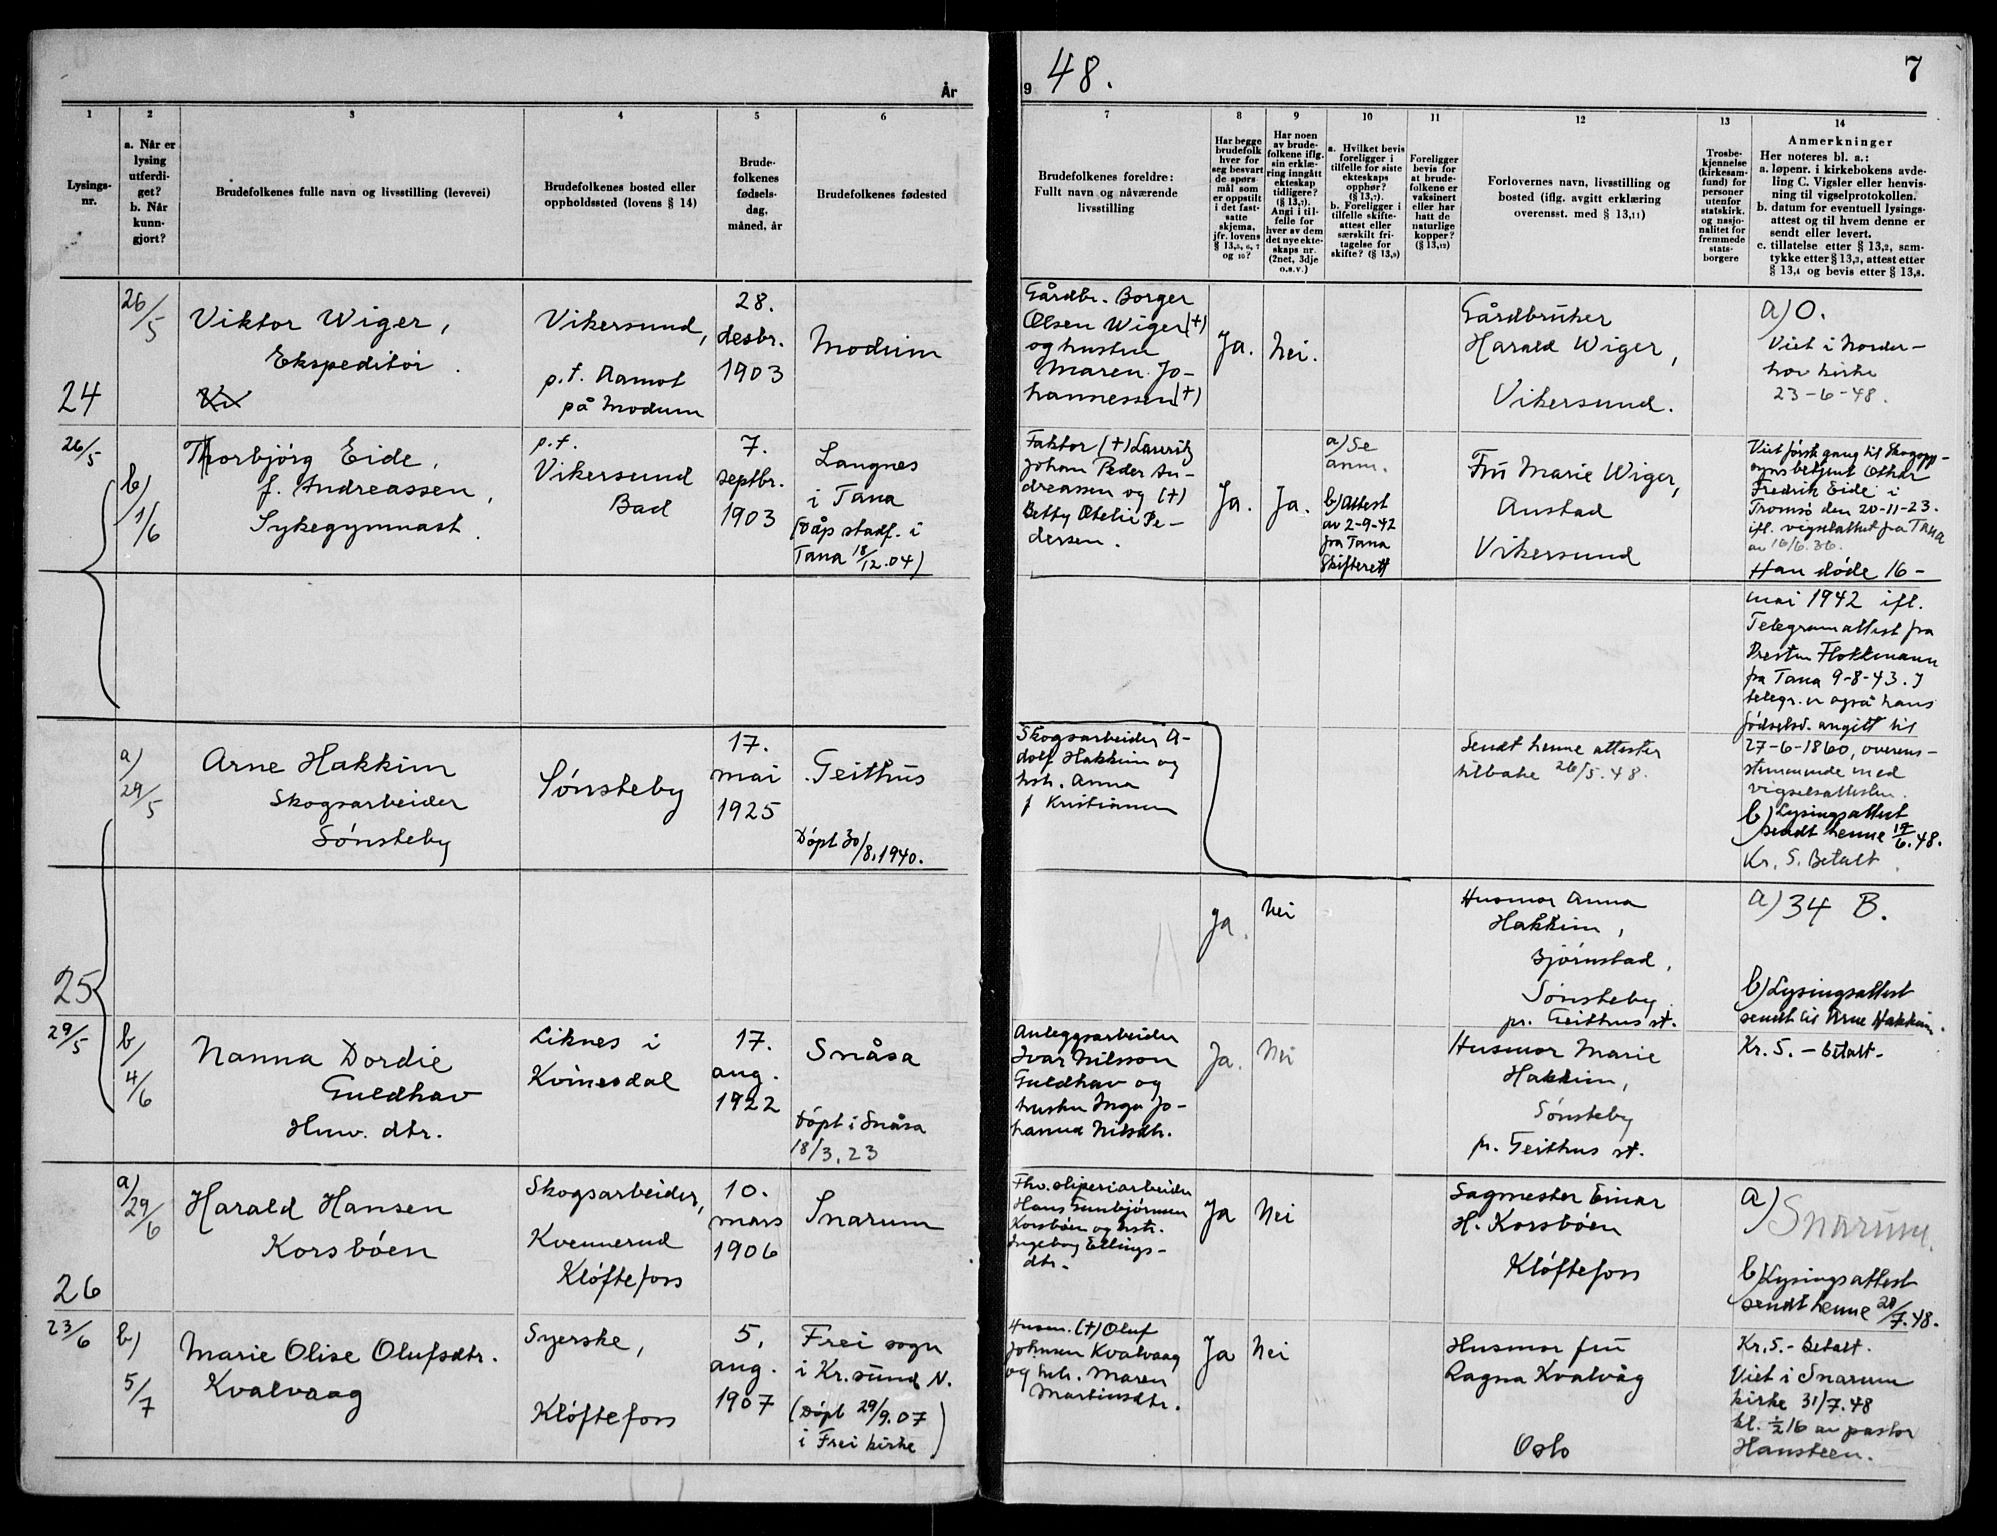 År
1
2
3
4
5
6
Lysings-
nr.
a. Når er
lysing
utferdi-
get?
b. Når
kunn-
gjort?
Brudefolkenes fulle navn og livsstilling (levevei)
Brudefolkenes bosted eller
oppholdssted (lovens § 14)
Brude-
folkenes
fødsels-
dag,
måned, år
Brudefolkenes fødested
24
26/5
Viktor Wiger,
Ekspeditør.
Vikersund,
p.t. Aamot
på Modum
28.
desbr.
1903
Modum
26/5
b/
1/6
Thorbjörg Eide,
f. Andreassen,
Sykegymnast.
p.t.
Vikersund
Bad
7.
septbr.
1903
Langnes
i Tana
(Dåp stadf. i
Tana 18/12.04)
a)
29/5
Arne Hakkim
Skogsarbeider
Sønsteby
Sønsteby
17.
mai
1925
Geithus
Döpt 30/8.1940.
25
29/5
b/
4/6
Nanna Dordie
Guldhav
Huw. dtr.
Liknes i
Kvinesdal
17.
aug.
1922
Snåsa
Döpt i Snåsa
18/3.23
a)
29/6
Harald Hansen
Korsböen
Skogsarbeider,
Kvennerud
Klöftefoss
10.
mars
1906
Snarum
26
23/6
b)
5/7
Marie Olise Olufsdtr.
Kvalvaag
Syerske,
Klöftefoss
5.
aug.
1907
Frei sogn
i Kr.sund N.
(Döpt 29/9.07
i Frei kirke)
9 48.
7
7
8
9
10
11
12
13
14
Brudefolkenes foreldre:
Fullt navn og nåværende
livsstilling
Har begge
brudefolk
hver for
seg besvart
de spørs-
mål som
er oppstilt
i det fast-
satte
skjema,
jfr. lovens
§ 13,5, 6, 7
og 10?
Har noen
av brude-
folkene iflg.
sin erklæ-
ring inngått
ekteskap
tidligere?
(§ 13,7).
Angi i til-
felle for
hver av dem
det nye ekte-
skaps nr.
(2net, 3dje
o.s.v.)
a. Hvilket bevis
foreligger i
tilfelle for siste
ekteskaps
opphør?
(§ 13,7).
b. Foreligger i
tilfelle skifte-
attest eller
særskilt fri-
tagelse for
skifte? (§ 13,9)
Foreligger
bevis for
at brude-
folkene er
vaksinert
eller har
hatt de
naturlige
kopper?
(§ 13,12)
Forlovernes navn, livsstilling og
bosted (iflg. avgitt erklæring
overensst. med § 13,11)
Trosbe-
kjennelse
(kirkesam-
fund) for
personer
utenfor
statskirk.
og nasjo-
nalitet for
fremmede
stats-
borgere
Anmerkninger
Her noteres bl. a.:
a. løpenr. i kirkebokens avde-
ling C. Vigsler eller henvis-
ning til vigselprotokollen.
b. datum for eventuell lysings-
attest og til hvem denne er
sendt eller levert.
c. tillatelse etter § 13,2, sam-
tykke etter § 13,3, attest etter
§ 13,4 og bevis etter § 13,8.
Gårdbr. Borger
Olsen Wiger (+)
og hustru
Maren Jo-
hannessen (+)
Ja.
Nei.
Gårdbruker
Harald Wiger,
Vikersund.
a) O.
Viet i Norder-
hov kirke
23-6-48.
Faktor (+) Lauritz
Johan Peder An-
dreassen og (+)
Betty Otelie Pe-
dersen.
Ja.
Ja.
a) Se
anm.
b) Attest
av 2-9-42
fra Tana
Skifterett
Fru Marie Wiger,
Anstad
Vikersund
Viet förste gang til Skogopp-
synsbetjent Othar
Fredrik Eide i
Tromsö den 20-11-23.
ifl. vigselattest fra Tana
av 16/6.36.
Han döde 16-
mai 1942 ifl.
Telegramattest fra
Presten Flokkmann
fra Tana 9-8-43. I
telegr. er også hans
födselsd. angitt til
27-6-1860, overens-
stemmende med
vigselsattesten.
b) Lysingsattest
sendt henne 19/6.48.
Kr. 5. Betalt.
Skogsarbeider A-
dolf Hakkim og
hstr. Anna
f. Kristiansen
Sendt henne attester
tilbake 26/5.48.
Ja.
Nei
Husmor Anna
Hakkim,
Björnstad,
Sønsteby
pr. Geithus st.
a) 34 B.
b) Lysingsattest
sendt til Arne Hakkim.
Anleggsarbeider
Ivar Nilsson
Guldhav og
hustru Inga Jo-
hanna Nilsdtr.
Ja.
Nei
Husmor Marie
Hakkim,
Sønsteby
pr. Geithus st.
Kr. 5. - Betalt -
Fhv. sliperiarbeider
Hans Gunbjörnsen
Korsböen og hstr.
Ingeborg Ellings-
dtr.
Ja
Nei
Sagmester Einar
H. Korsböen
Klöftefoss
a)
Snarum.
b) Lysingsattest
sendt henne 20/7.48.
(+) Oluf
Johnsen Kvalvaag
og hstr. Maren
Martinsdtr.
Ja
Nei
Husmor fru
Ragna Kvalvåg
Oslo
Kr. 5. - Betalt.
Viet i Snarum
kirke 31/7.48
kl. ½16 av pastor
Hansteen.